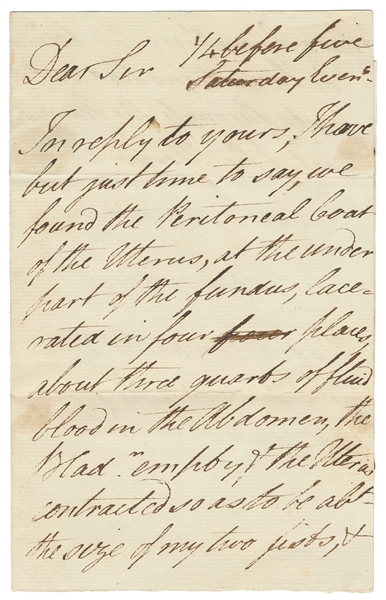 1/4 before five
Dear Sir Saturday Eveng.
In reply to yours, I have
but just time to say, we
found the Peritoneal Coat
of the Uterus, at the under
part of the fundus, lace-
rated in four four places,
about three quarts of fluid
blood in the Abdomen, the
Bladr. empty, & the Uterus
contracted so as to be abt.
the size of my two fists, &